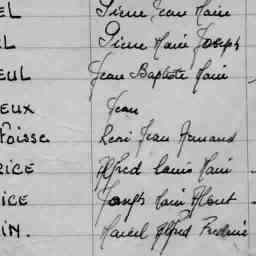 EL Pierre Jean Marie
EL Pierre Marie Joseph
EUL Jean Baptiste Marie
EUX Jean
Poisse René Jean Armand
RICE Alfred Louis Marie
ICE Joseph Marie Albert
IN. Marcel Alfred Frédéric